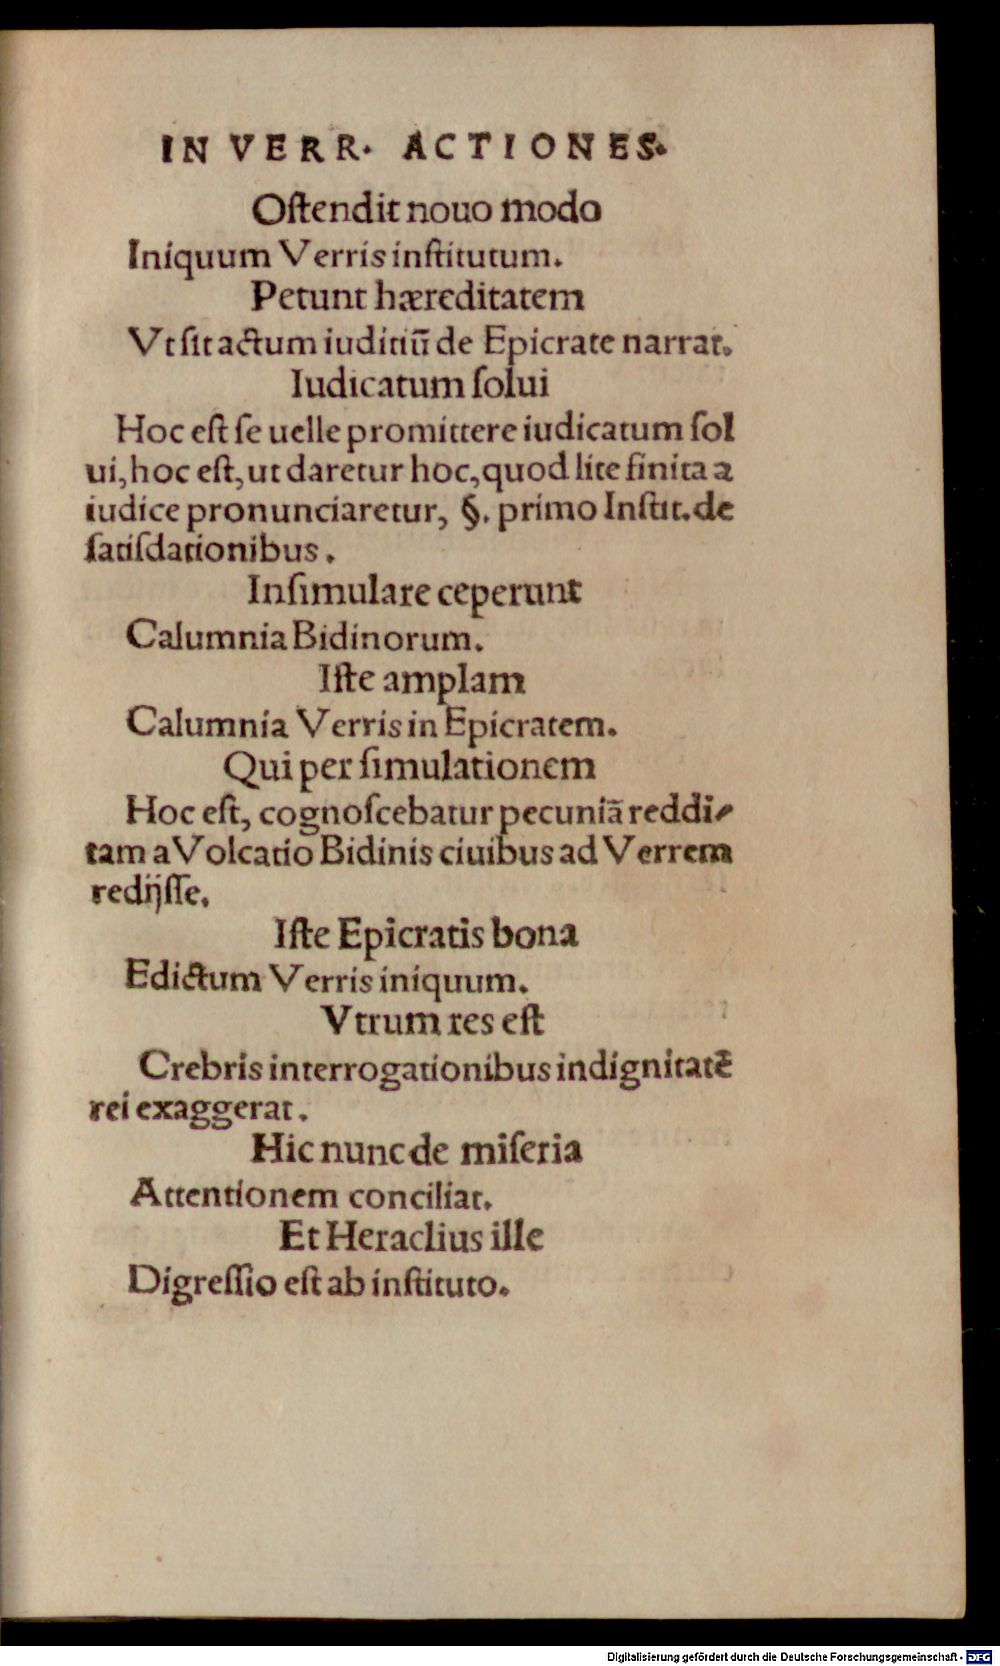 IN VERR. ACTIONES.
Oſtendit nouo modo
Iniquum Verris inſtitutum.
Petunt hæreditatem
Vt ſit actum iuditiū de Epicrate narrat.
Iudicatum ſolui
Hoc eſt ſe uelle promittere iudicatum ſol
ui, hoc eſt, ut daretur hoc, quod lite finita a
iudice pronunciaretur, §. primo Inſtit. de
ſatiſdationibus.
Inſimulare ceperunt
Calumnia Bidinorum.
Iſte amplam
Calumnia Verris in Epicratem.
Qui per ſimulationem
Hoc eſt, cognoſcebatur pecuniā reddi-
tam a Volcatio Bidinis ciuibus ad Verrem
redijſſe.
Iſte Epicratis bona
Edictum Verris iniquum.
Vtrum res eſt
Crebris interrogationibus indignitatē
rei exaggerat.
Hic nunc de miſeria
Attentionem conciliat.
Et Heraclius ille
Digreſſio eſt ab inſtituto.
Digitalisierung gefördert durch die Deutsche Forschungsgemeinschaft - DFG